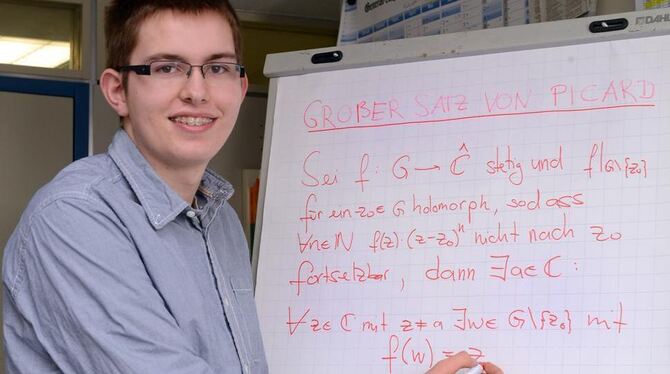 DAHLE
GROßER SATZ VON PICARD
Sei f: G → Ĉ stetig und f|G\{z₀}
für ein z₀ ∈ G holomorph, sodass
∀n∈ℕ f(z)·(z-z₀)ⁿ nicht nach z₀
fortsetzbar, dann ∃a∈ℂ:
∀z∈ℂ mit z≠a ∃w∈ G\{z₀} mit
f(w) = z